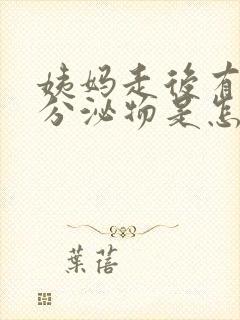 姨妈走後有
分泌物是怎
葉蓓